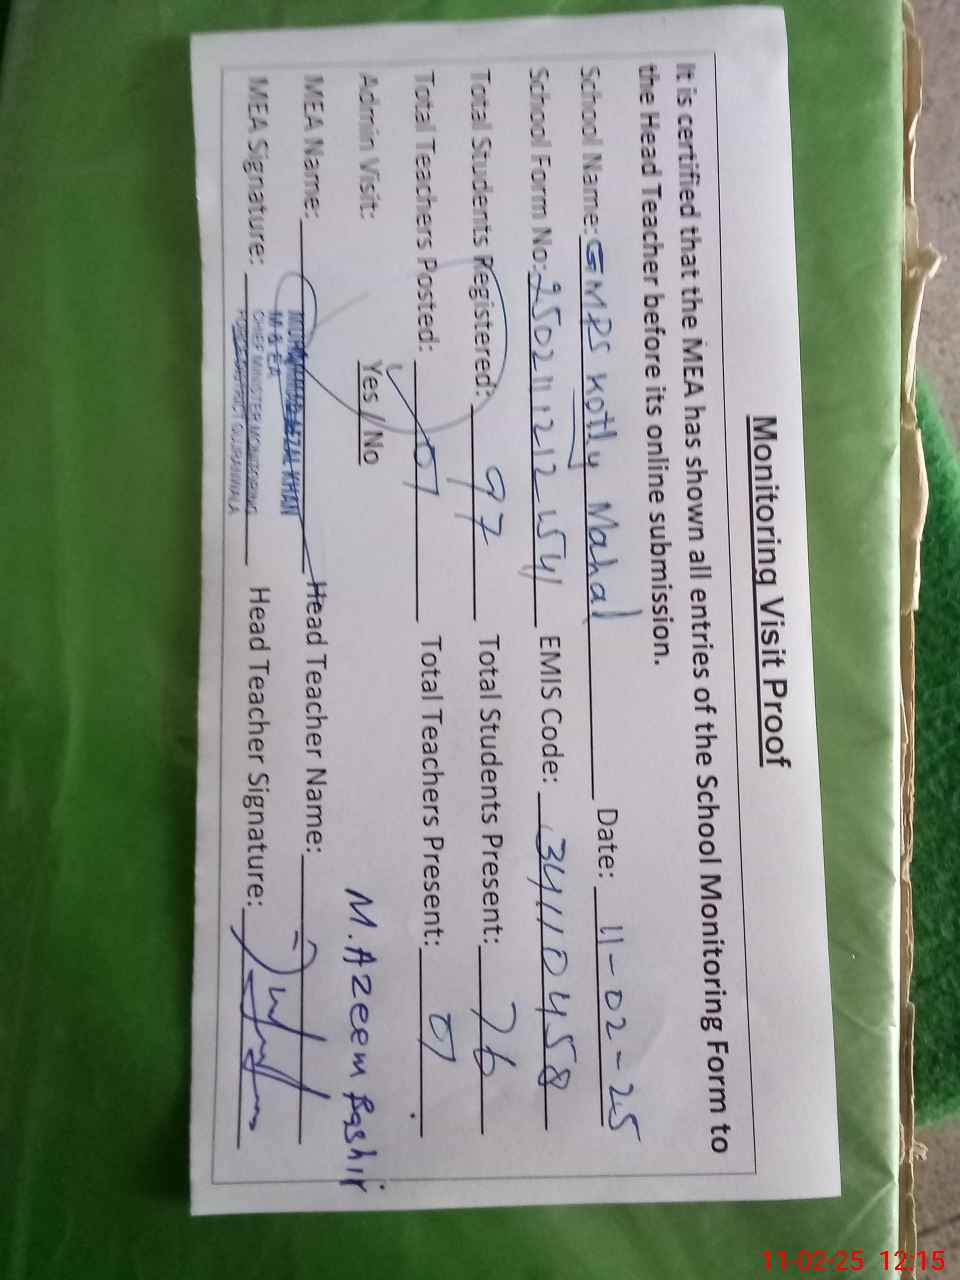 Monitoring Visit Proof
It is certified that the MEA has shown all entries of the School Monitoring Form to
the Head Teacher before its online submission.
School Name: GMPS Kotly Mahal Date: 11-02-25
School Form No: EMIS Code: 34110458
Total Students Registered: 97 Total Students Present: 76
Total Teachers Posted: 07 Total Teachers Present: 07
Admin Visit: Yes / No
M. Azeem Bashir
MEA Name: Head Teacher Name:
MUHAMMAD AFZAL KHAN
M & EA
MEA Signature: Head Teacher Signature:
CHIEF MINISTER MONITORING
DISTRICT GUJRANWALA
11-02-25 12:15